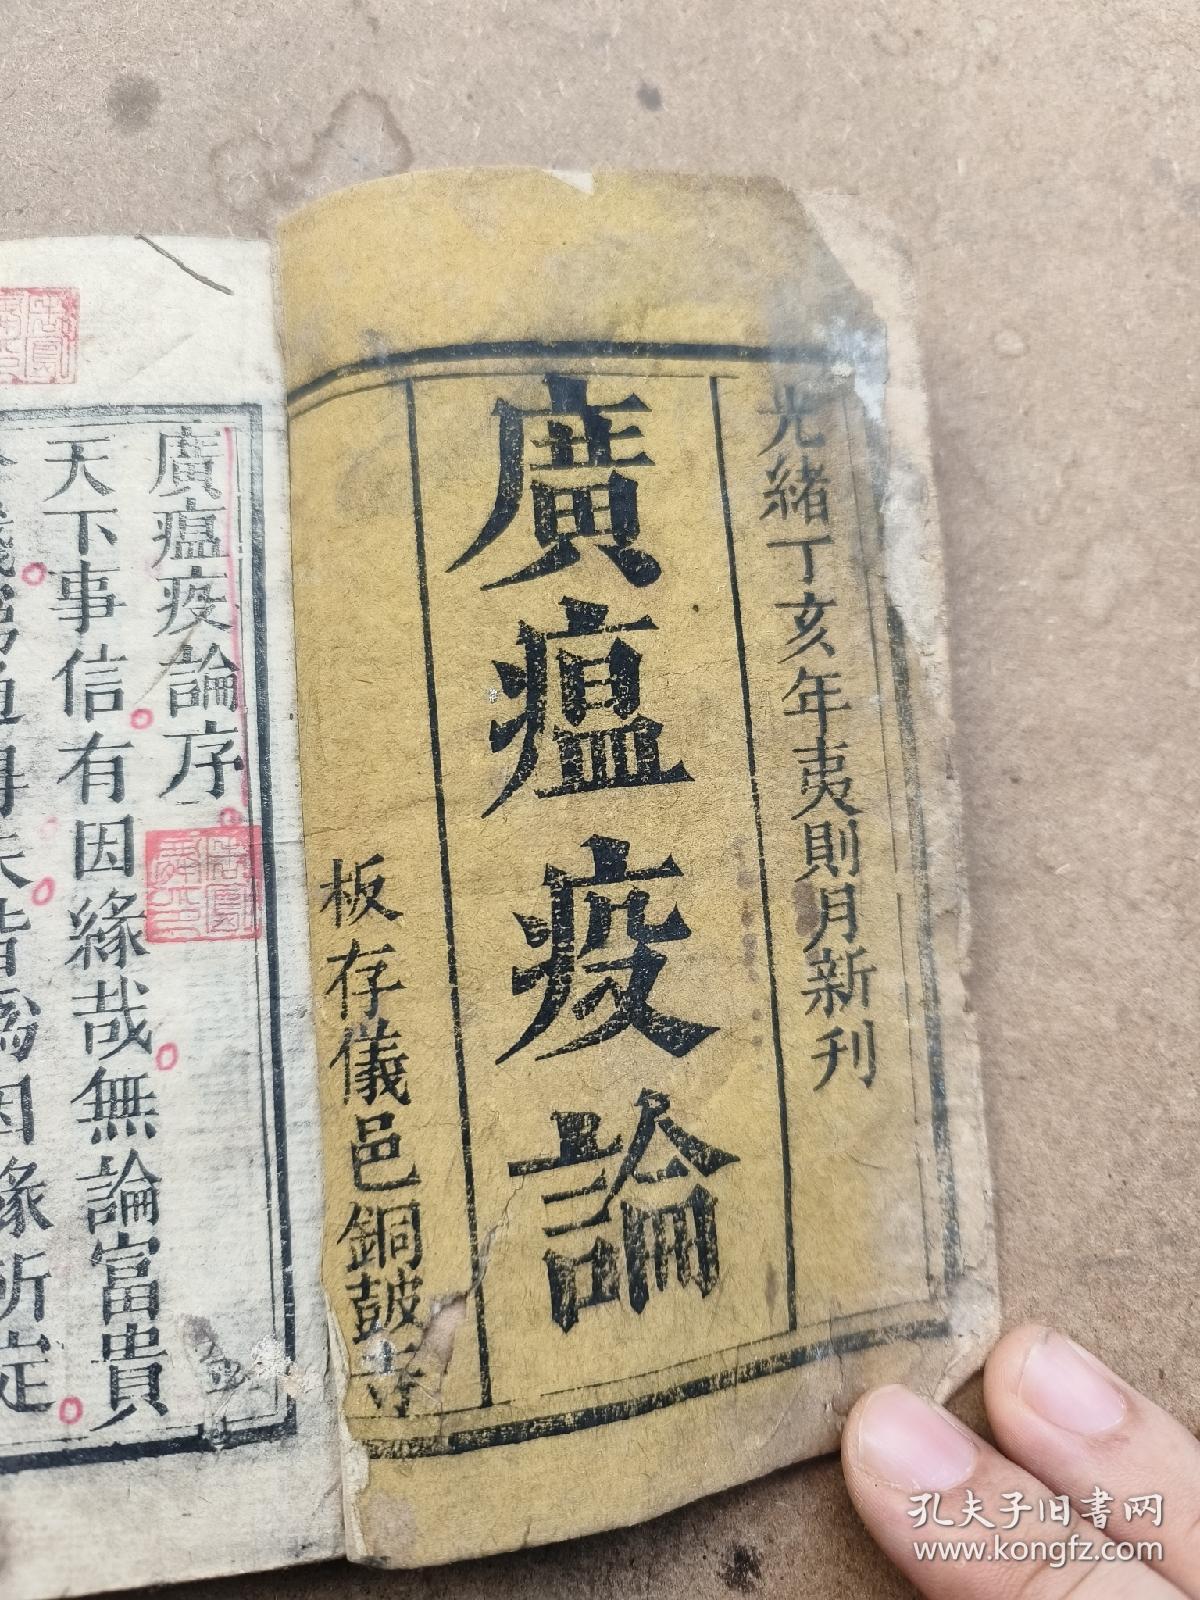 光緒丁亥年夷則月新刊
廣瘟疫論
板存儀邑銅鼓寺
廣瘟疫論序
天下事信有因緣哉無論富貴
得失皆爲因緣所定
孔夫子旧书网
www.kongfz.com